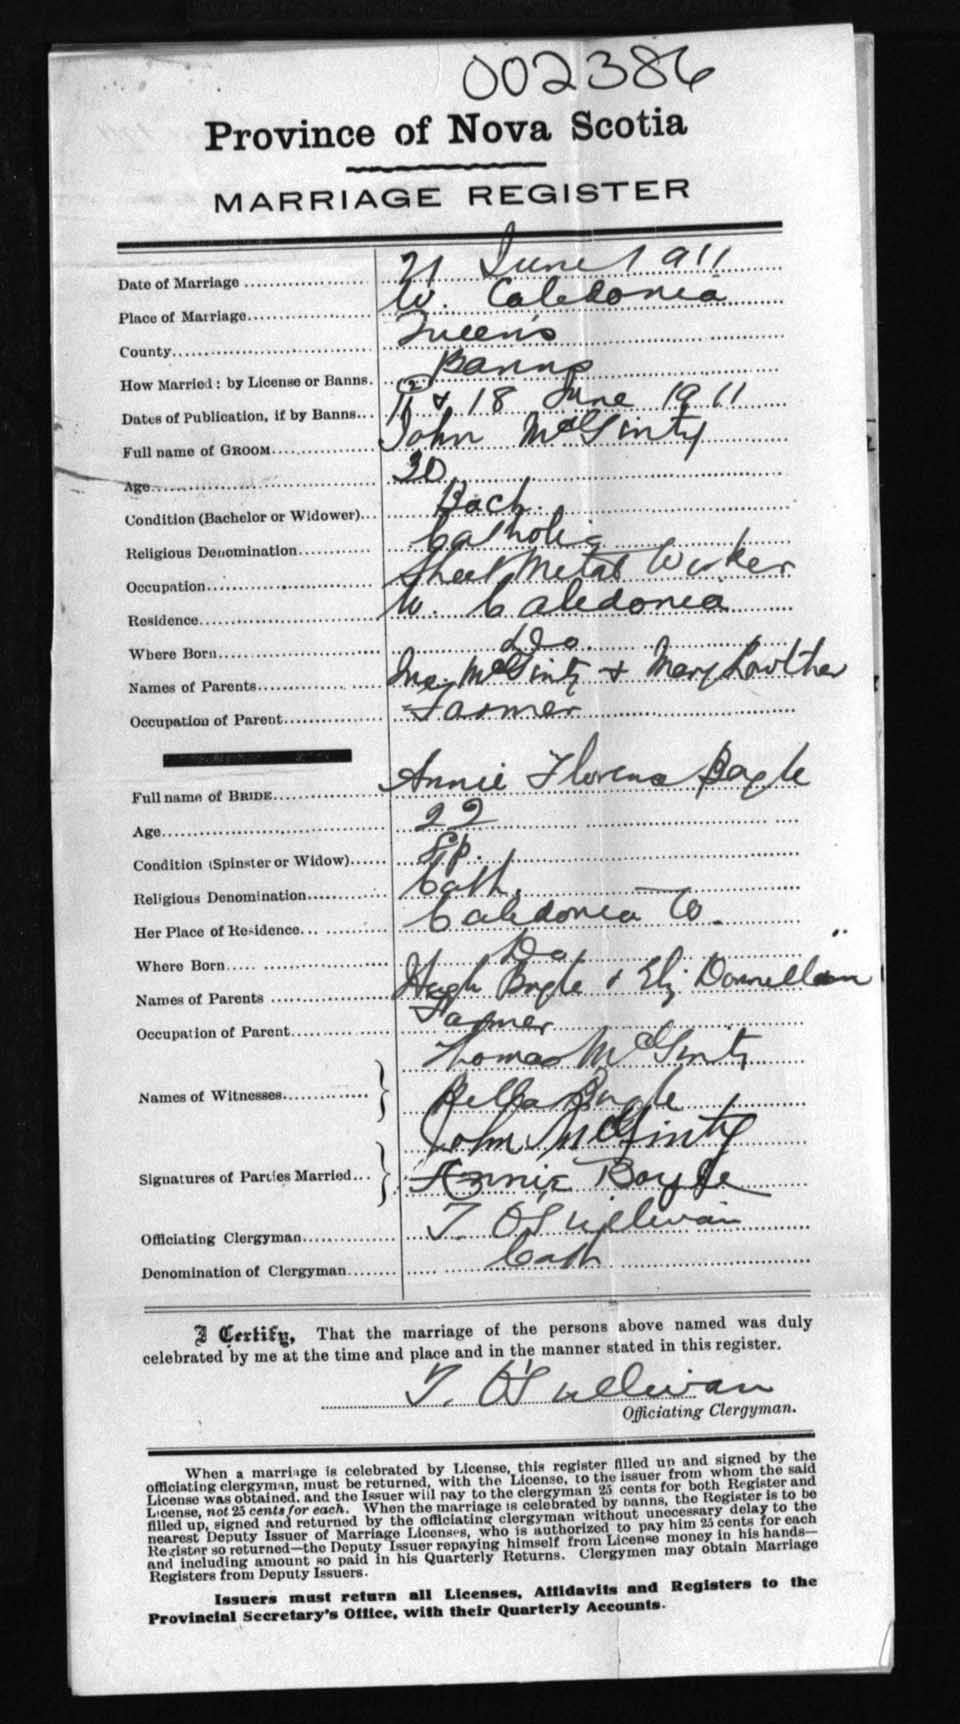 002386
Province of Nova Scotia
MARRIAGE REGISTER
Date of Marriage 21 June 1911
Place of Marriage W. Caledonia
County Queen's
How Married: by License or Banns. Banns
Dates of Publication, if by Banns 11 & 18 June 1911
Full name of GROOM John McGinty
Age 30
Condition (Bachelor or Widower) Bach.
Religious Denomination Catholic
Occupation Sheet Metal Worker
Residence W. Caledonia
Where Born Do
Names of Parents McGinty & Mary Lowther
Occupation of Parent Farmer
Full name of BRIDE Annie Florence Boyle
Age 22
Condition (Spinster or Widow) Sp.
Religious Denomination Cath.
Her Place of Residence Caledonia W.
Where Born Do
Names of Parents Hugh Boyle & Eliz Donnellan
Occupation of Parent Farmer
Names of Witnesses Thomas McGinty
Bella Boyle
Signatures of Parties Married John McGinty
Annie Boyle
Officiating Clergyman T. O'Sullivan
Denomination of Clergyman Cath
I Certify, That the marriage of the persons above named was duly
celebrated by me at the time and place and in the manner stated in this register.
T. O'Sullivan
Officiating Clergyman.
When a marriage is celebrated by License, this register filled up and signed by the
officiating clergyman, must be returned, with the License, to the issuer from whom the said
License was obtained, and the Issuer will pay to the clergyman 25 cents for both Register and
License, not 25 cents for each. When the marriage is celebrated by banns, the Register is to be
filled up, signed and returned by the officiating clergyman without unnecessary delay to the
nearest Deputy Issuer of Marriage Licenses, who is authorized to pay him 25 cents for each
Register so returned—the Deputy Issuer repaying himself from License money in his hands—
and including amount so paid in his Quarterly Returns. Clergymen may obtain Marriage
Registers from Deputy Issuers.
Issuers must return all Licenses, Affidavits and Registers to the
Provincial Secretary's Office, with their Quarterly Accounts.